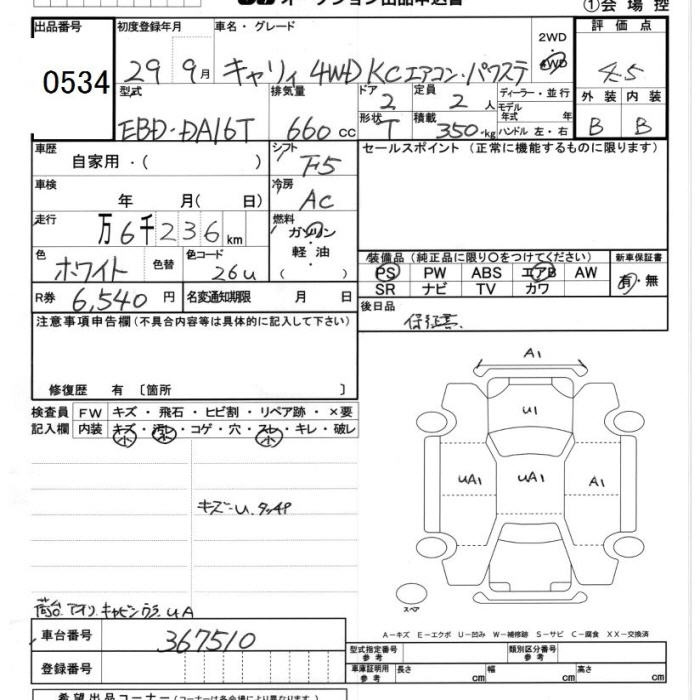 オークション出品申込書 ①会場控
出品番号 初度登録年月 車名・グレード 2WD 4WD 評価点
0534 29 9月 キャリィ 4WD KC エアコン・パワステ 4.5
型式 排気量 ドア 定員 ディーラー・並行 外装 内装
EBD-DA16T 660cc 2 2人 モデル年式 年 B B
形状 T 積載 350kg ハンドル 左・右
車歴 自家用・( ) シフト F5 セールスポイント (正常に機能するものに限ります)
車検 年 月(日) 冷房 AC
走行 万6千236km 燃料 ガソリン 軽油 ( )
色 ホワイト 色替 色コード 26U
装備品 (純正品に限り〇をつけてください) 新車保証書
PS PW ABS エアB AW 有・無
SR ナビ TV カワ
R券 6,540円 名変通知期限 月 日
後日品 保証書
注意事項申告欄 (不具合内容等は具体的に記入して下さい)
修復歴 有 〔箇所 〕
検査員 FW キズ・飛石・ヒビ割・リペア跡・×要
記入欄 内装 キズ・汚レ・コゲ・穴・スレ・キレ・破レ
小 小 小
A1
U1
UA1 UA1 A1
キズ-U.タッチP
荷台 アオリ キャビンウラ UA
スペア
A-キズ E-エクボ U-凹み W-補修跡 S-サビ C-腐食 XX-交換済
車台番号 367510
登録番号
型式指定番号 参考 類別区分番号 参考
車庫証明用 参考 長さ cm 幅 cm 高さ cm
希望出品コーナー (コーナーは各会場により異なります。)